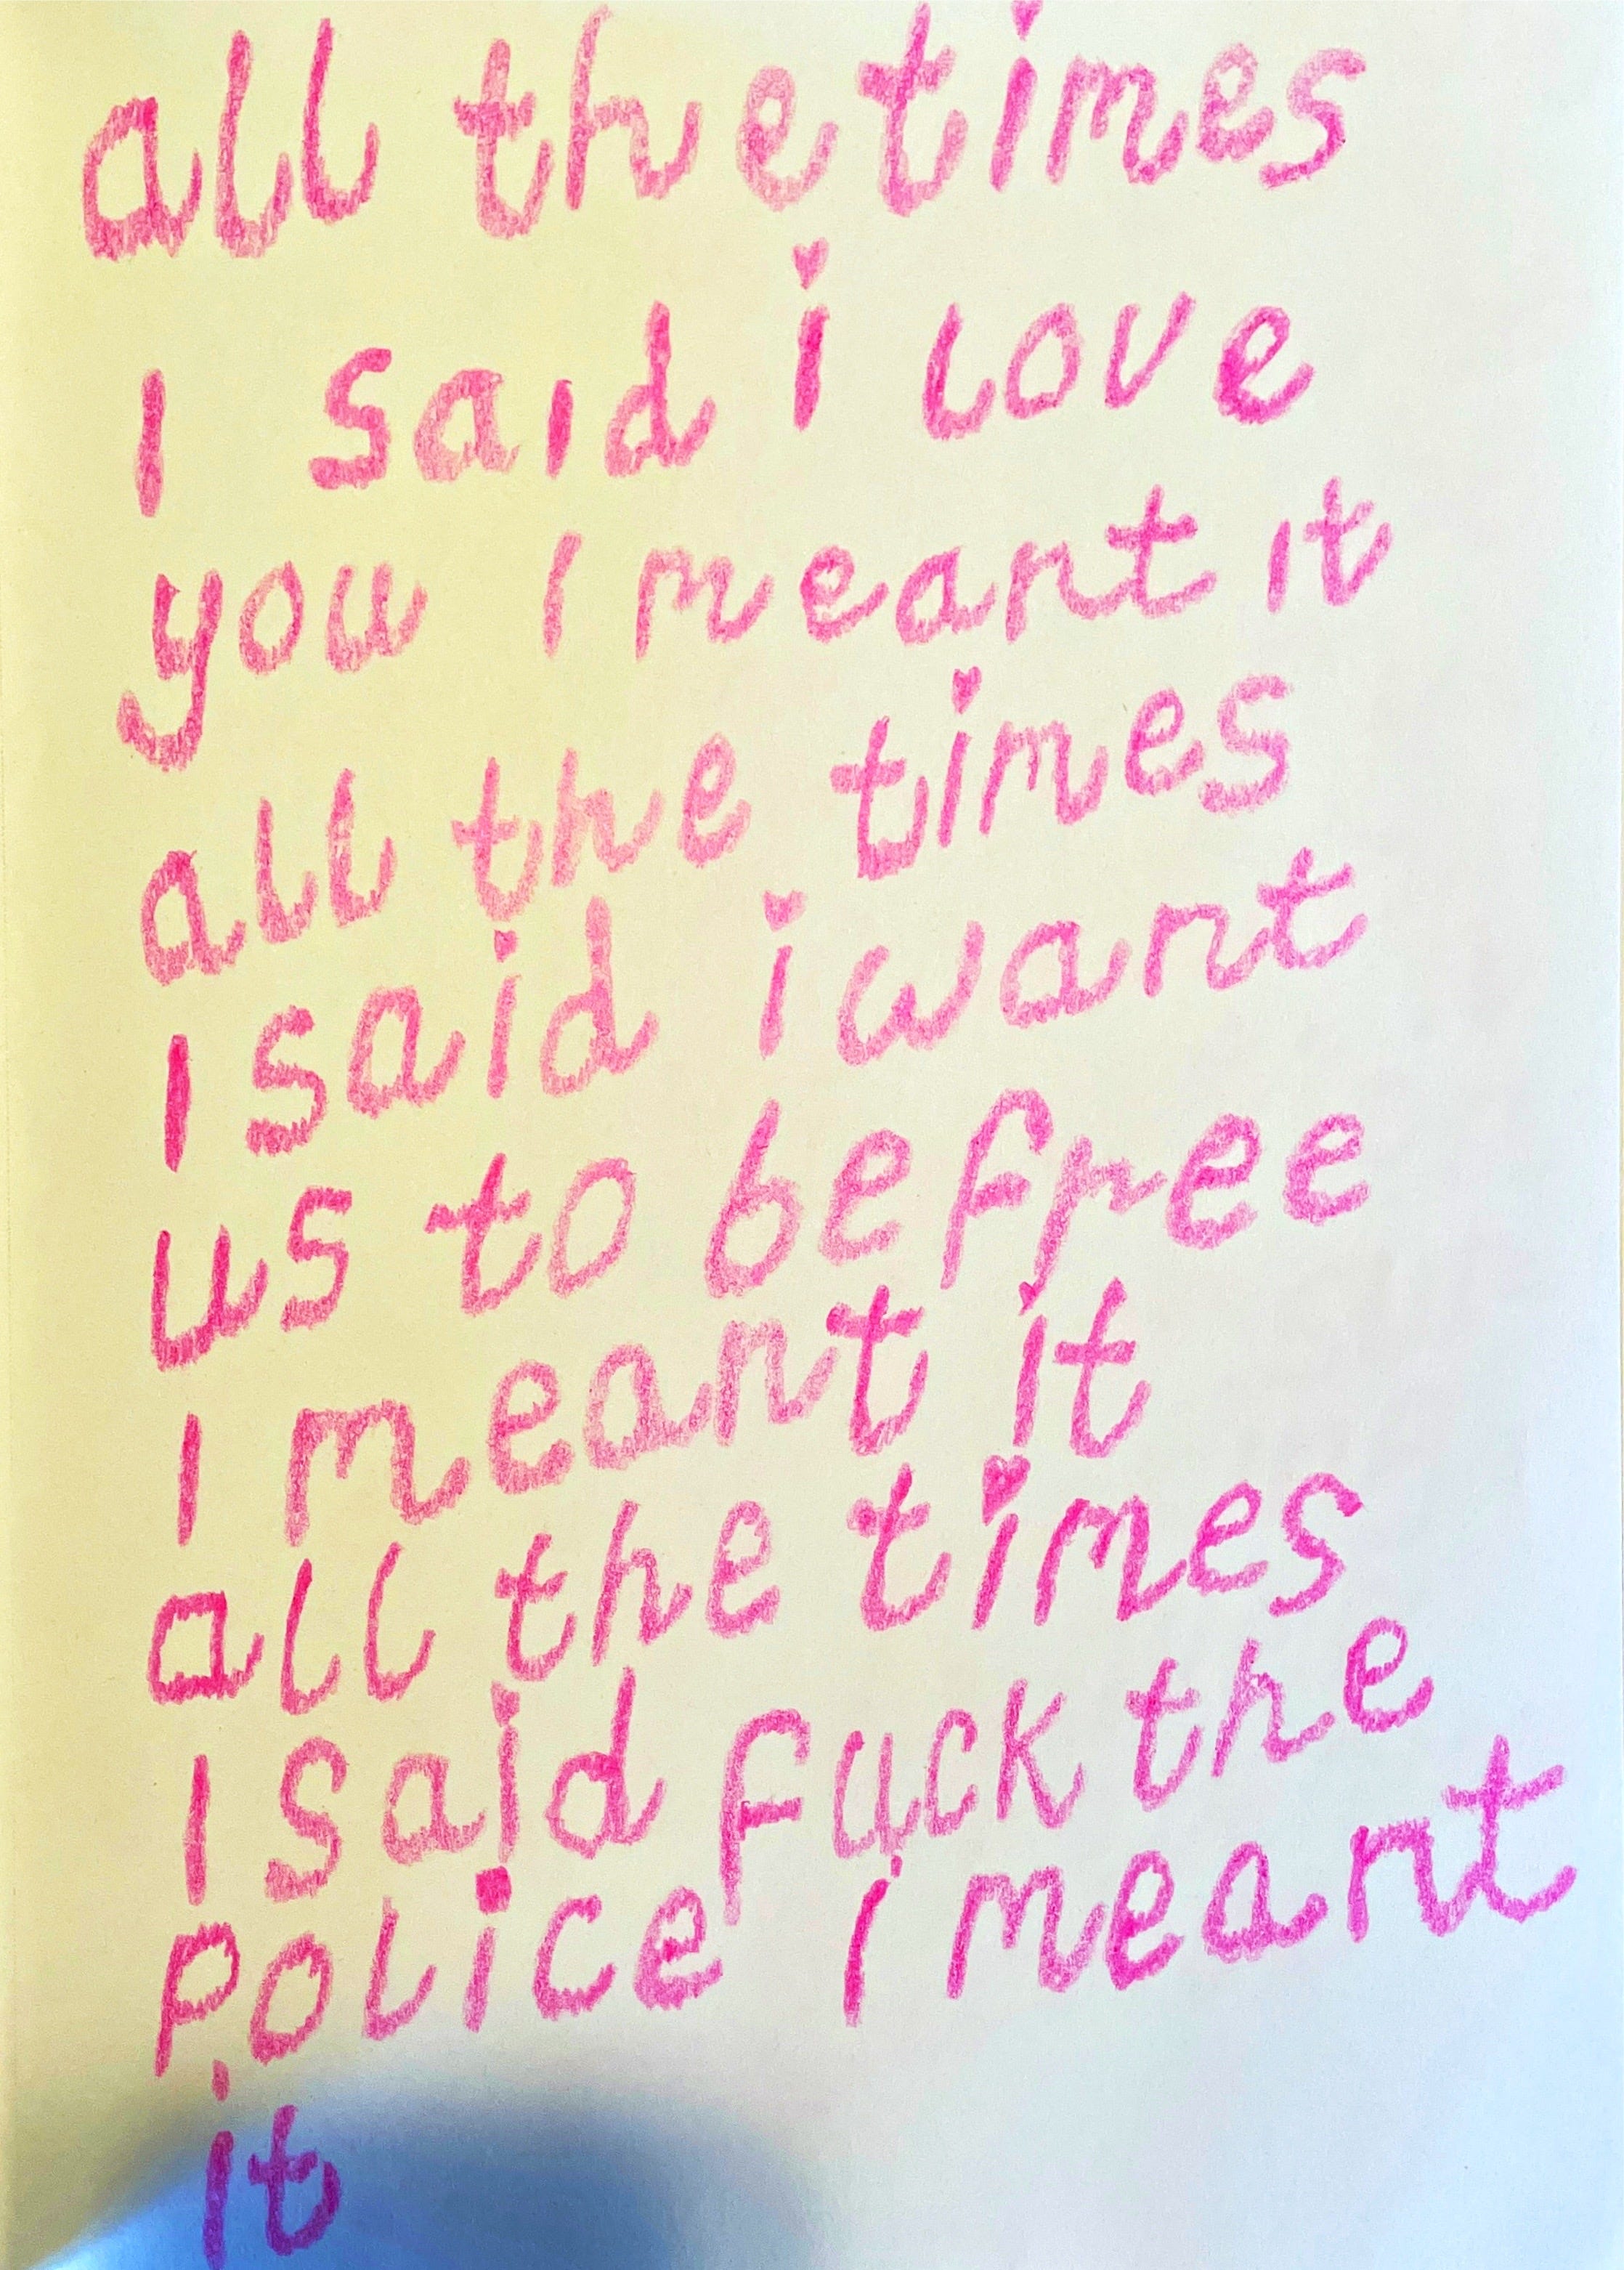 all the times
I said i love
you I meant it
all the times
I said i want
us to be free
I meant it
all the times
I said fuck the
police i meant
it